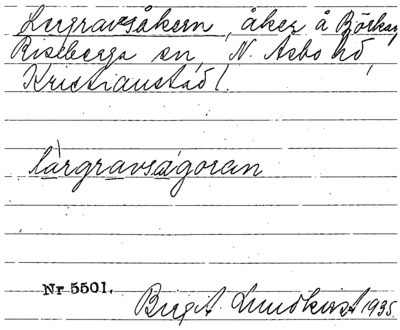 Lergravsåkern, åker å Björkas,
Riseberga sn, N. Asbo hd,
Kristianstad l.
làrgravságoran
Nr 5501.
Birgit Lundkvist 1935.